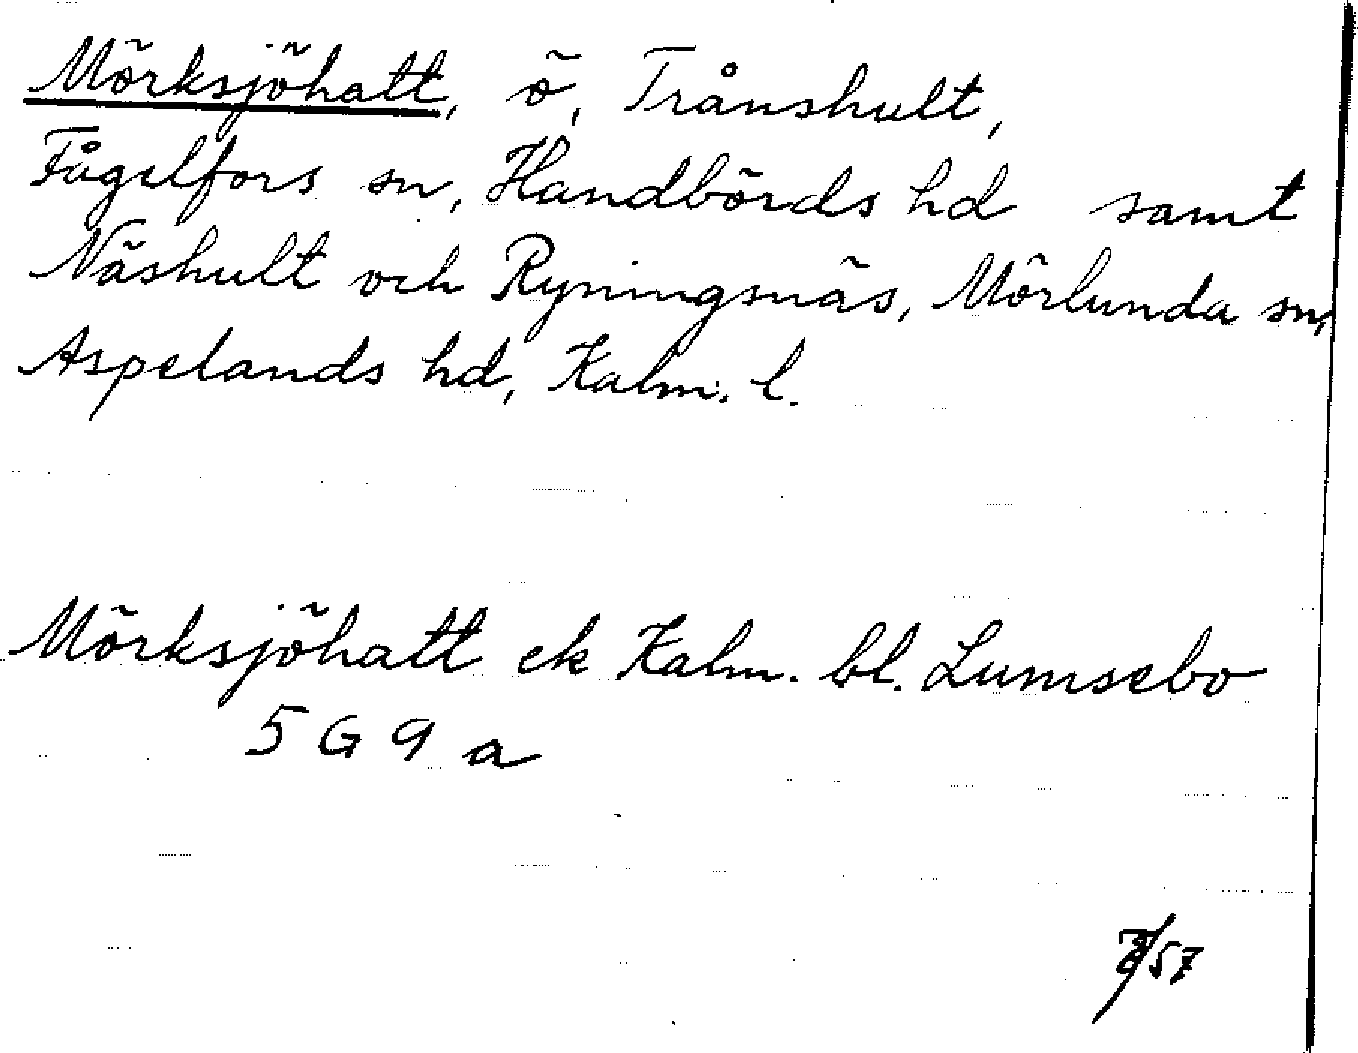 Mörksjöhatt, ö, Trånshult,
Fågelfors sn, Handbörds hd samt
Näshult och Ryningsnäs, Mörlunda sn,
Aspelands hd, Kalm. l.
Mörksjöhatt ek Kalm. bl. Lumsebo
5 G 9 a